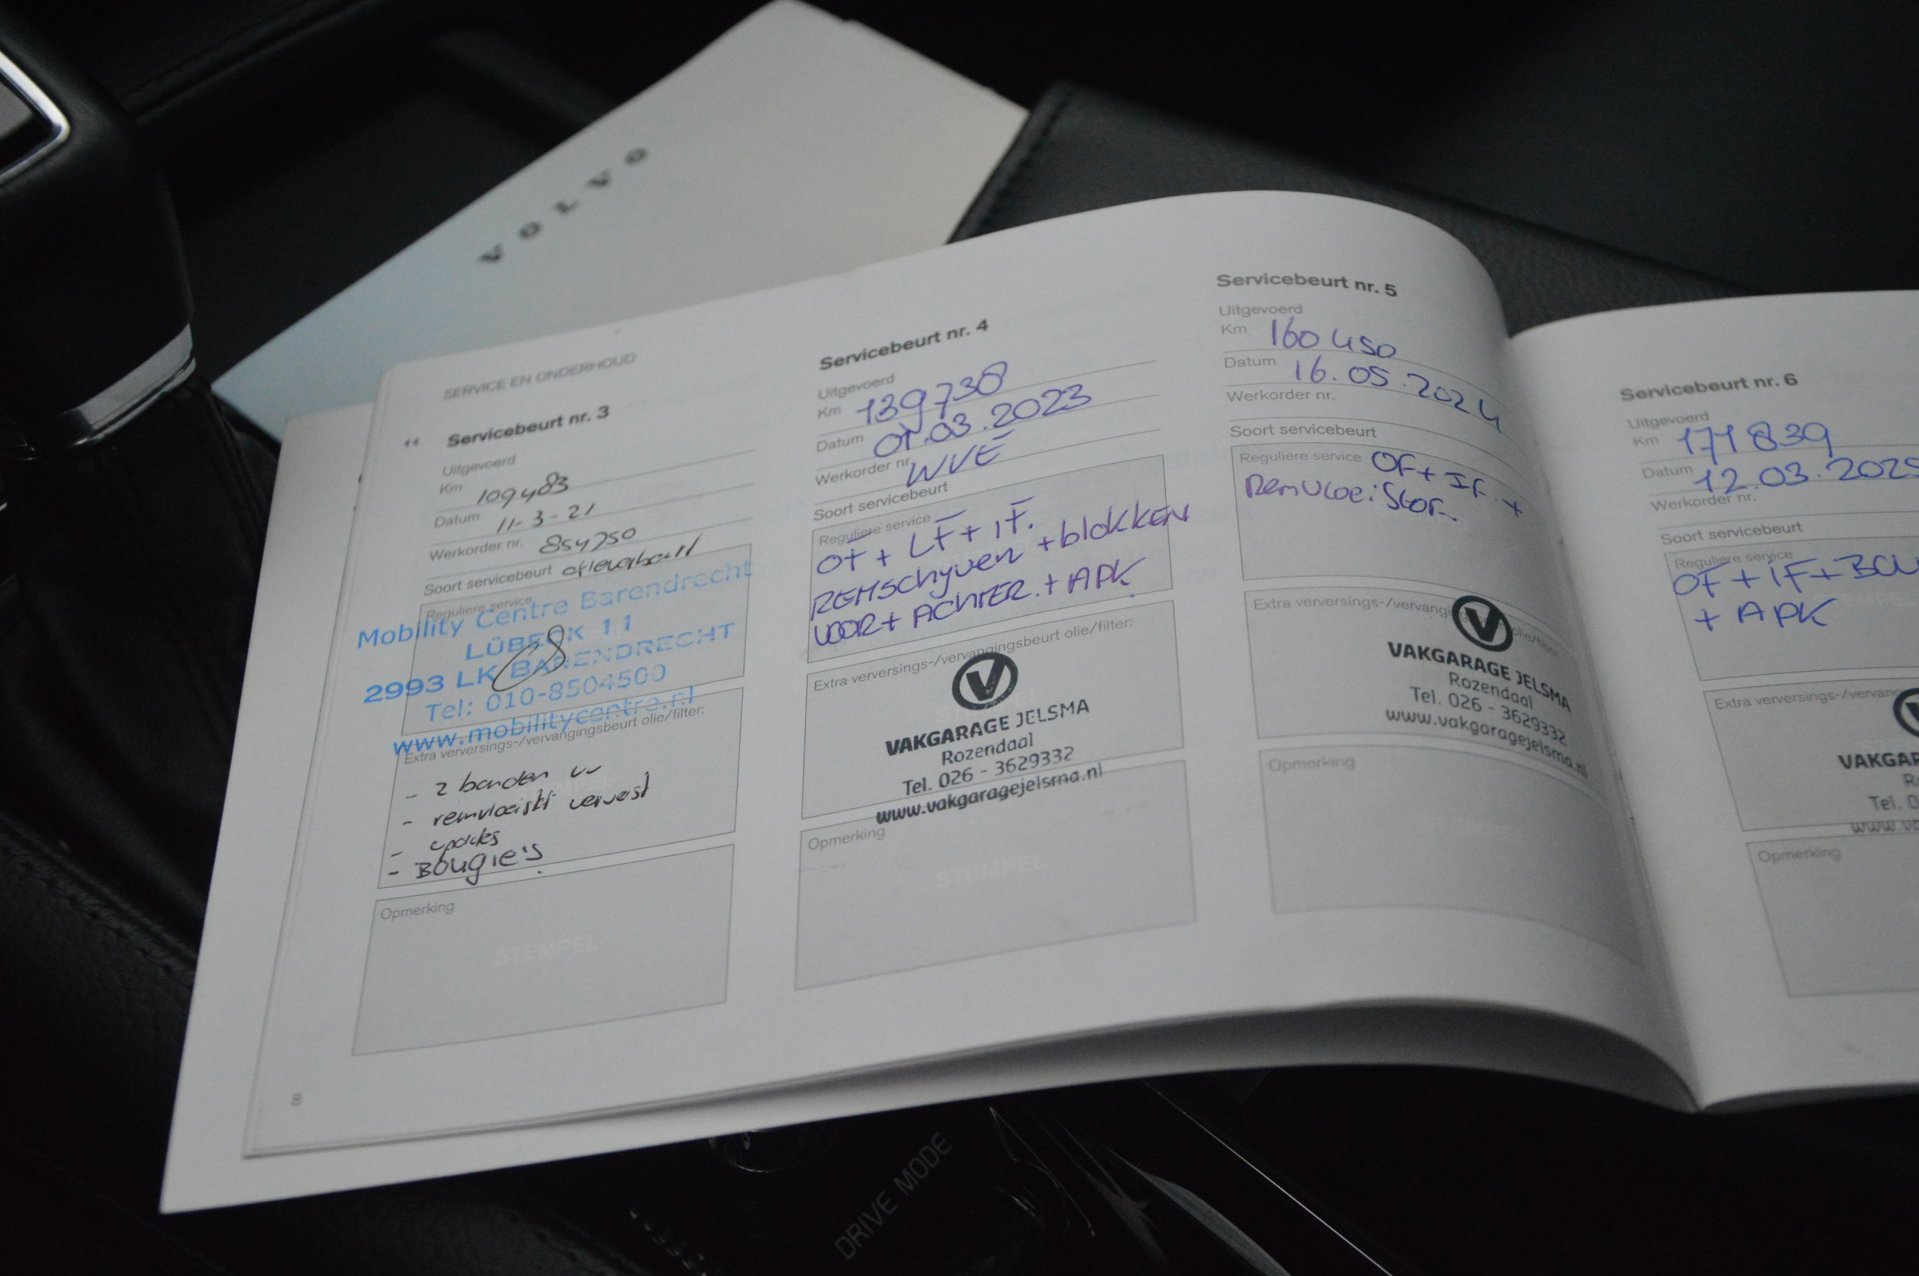 VOLVO
SERVICE EN ONDERHOUD
Servicebeurt nr. 3
Uitgevoerd
Km 109483
Datum 11-3-21
Werkorder nr. 854750
Soort servicebeurt afleverbeurt
Reguliere service
Mobility Centre Barendrecht
LÜBECK 11
2993 LK BARENDRECHT
Tel: 010-8504500
www.mobilitycentre.nl
Extra verversings-/vervangingsbeurt olie/filter:
- 2 banden
- remvloeistof ververst
- updates
- Bougie's
Opmerking
STEMPEL
8
Servicebeurt nr. 4
Uitgevoerd
Km 139738
Datum 01.03.2023
Werkorder nr. WVE
Soort servicebeurt
Reguliere service
OF + LF + IF.
REMSchyven + blokken
VOOR + ACHTER. + APK
Extra verversings-/vervangingsbeurt olie/filter:
VAKGARAGE JELSMA
Rozendaal
Tel. 026 - 3629332
www.vakgaragejelsma.nl
Opmerking
STEMPEL
Servicebeurt nr. 5
Uitgevoerd
Km 160450
Datum 16.05.2024
Werkorder nr.
Soort servicebeurt
Reguliere service OF + IF. +
Remvloeistof.
Extra verversings-/vervangingsbeurt olie/filter:
VAKGARAGE JELSMA
Rozendaal
Tel. 026 - 3629332
www.vakgaragejelsma.nl
Opmerking
Servicebeurt nr. 6
Uitgevoerd
Km 171839
Datum 12.03.2025
Werkorder nr.
Soort servicebeurt
Reguliere service
OF + IF + BOU
+ APK
Extra verversings-/vervan
VAKGAR
Tel. 0
www.va
Opmerking
DRIVE MODE